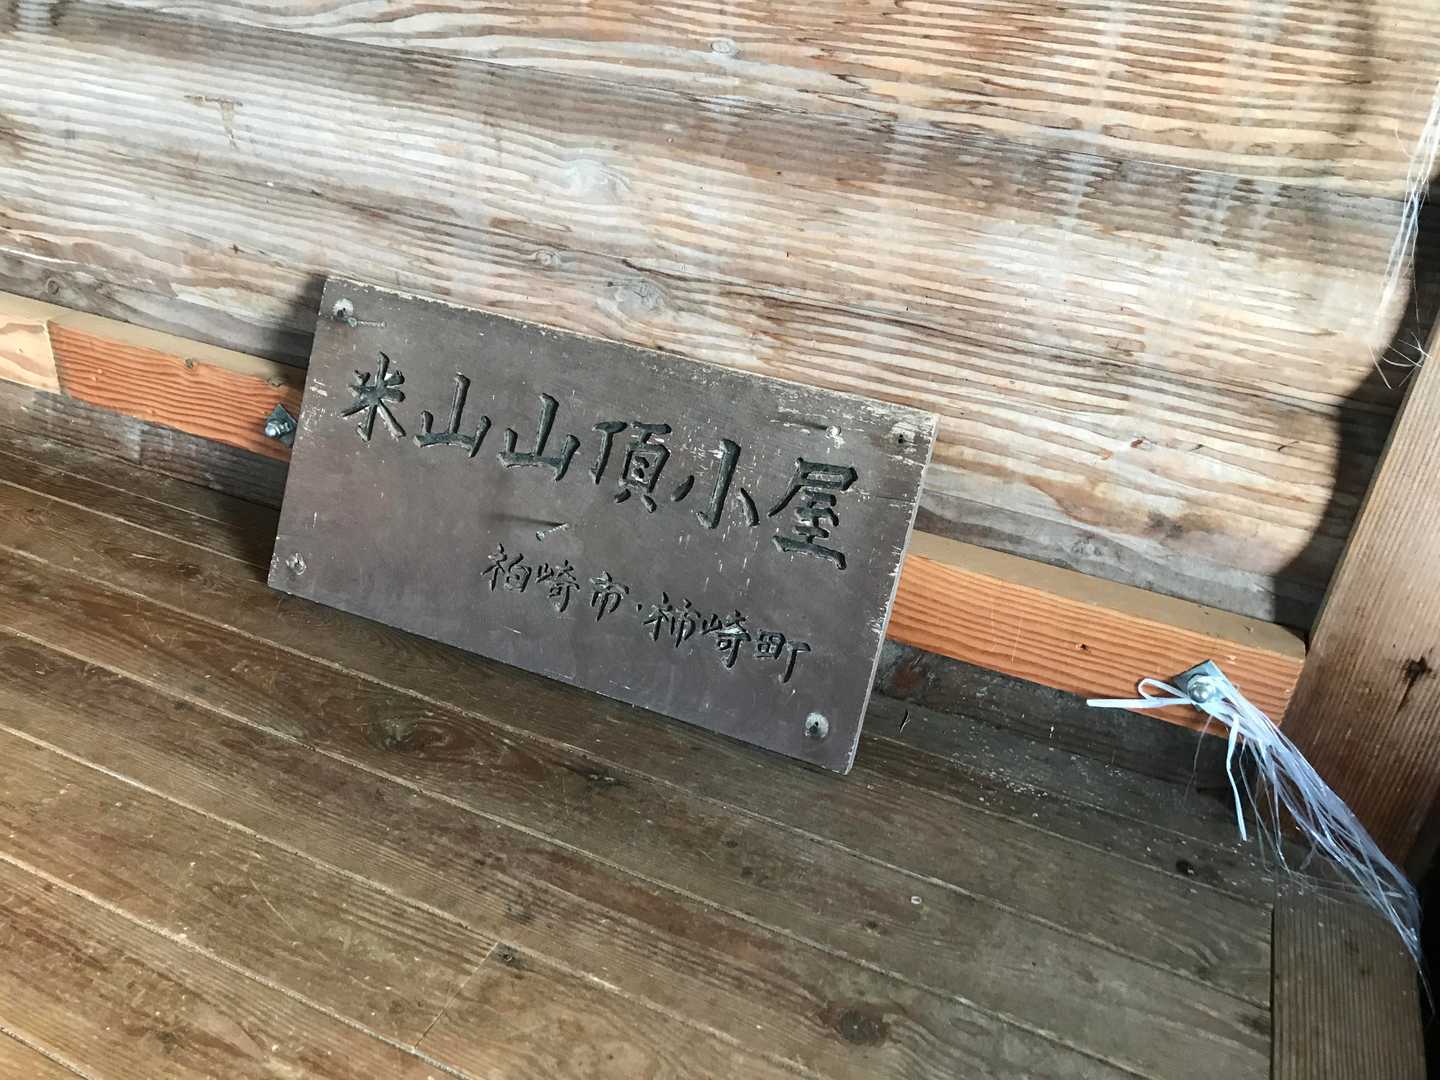 米山山頂小屋
柏崎市・柿崎町